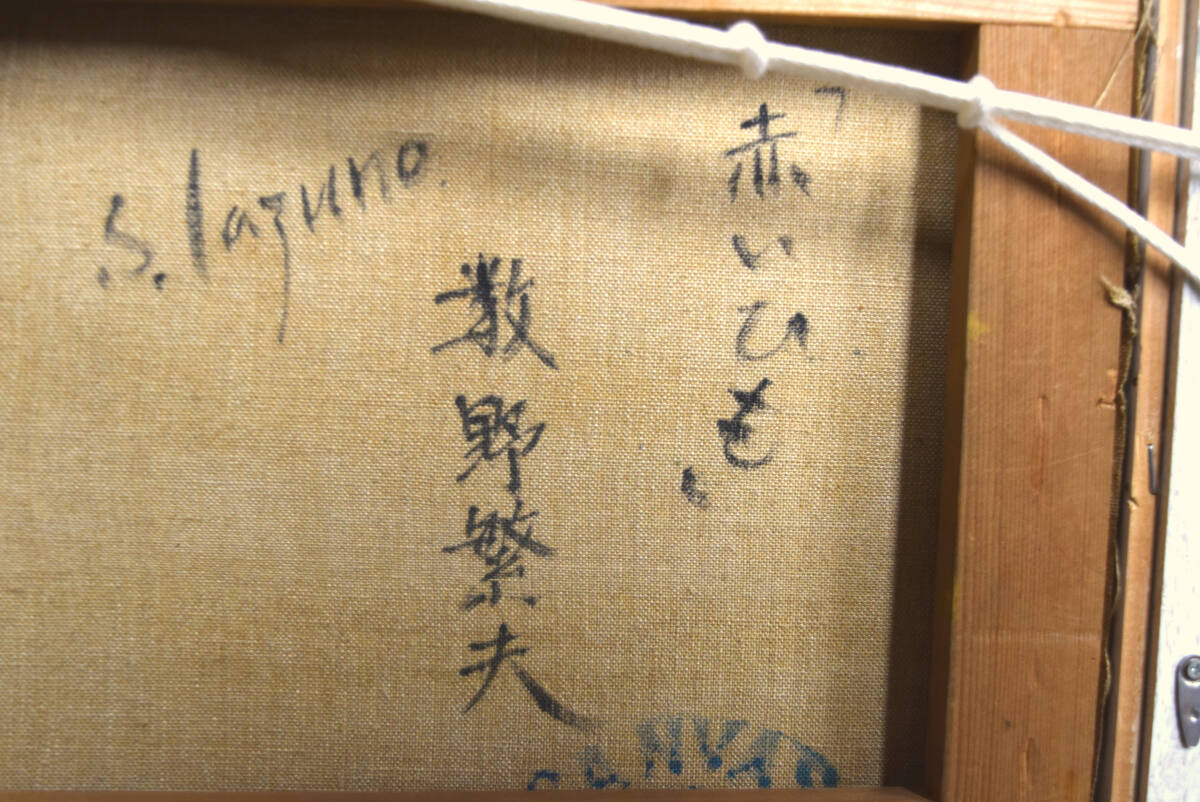 「赤いひも」
数野繁夫
S. Kazuno.
CANVAS